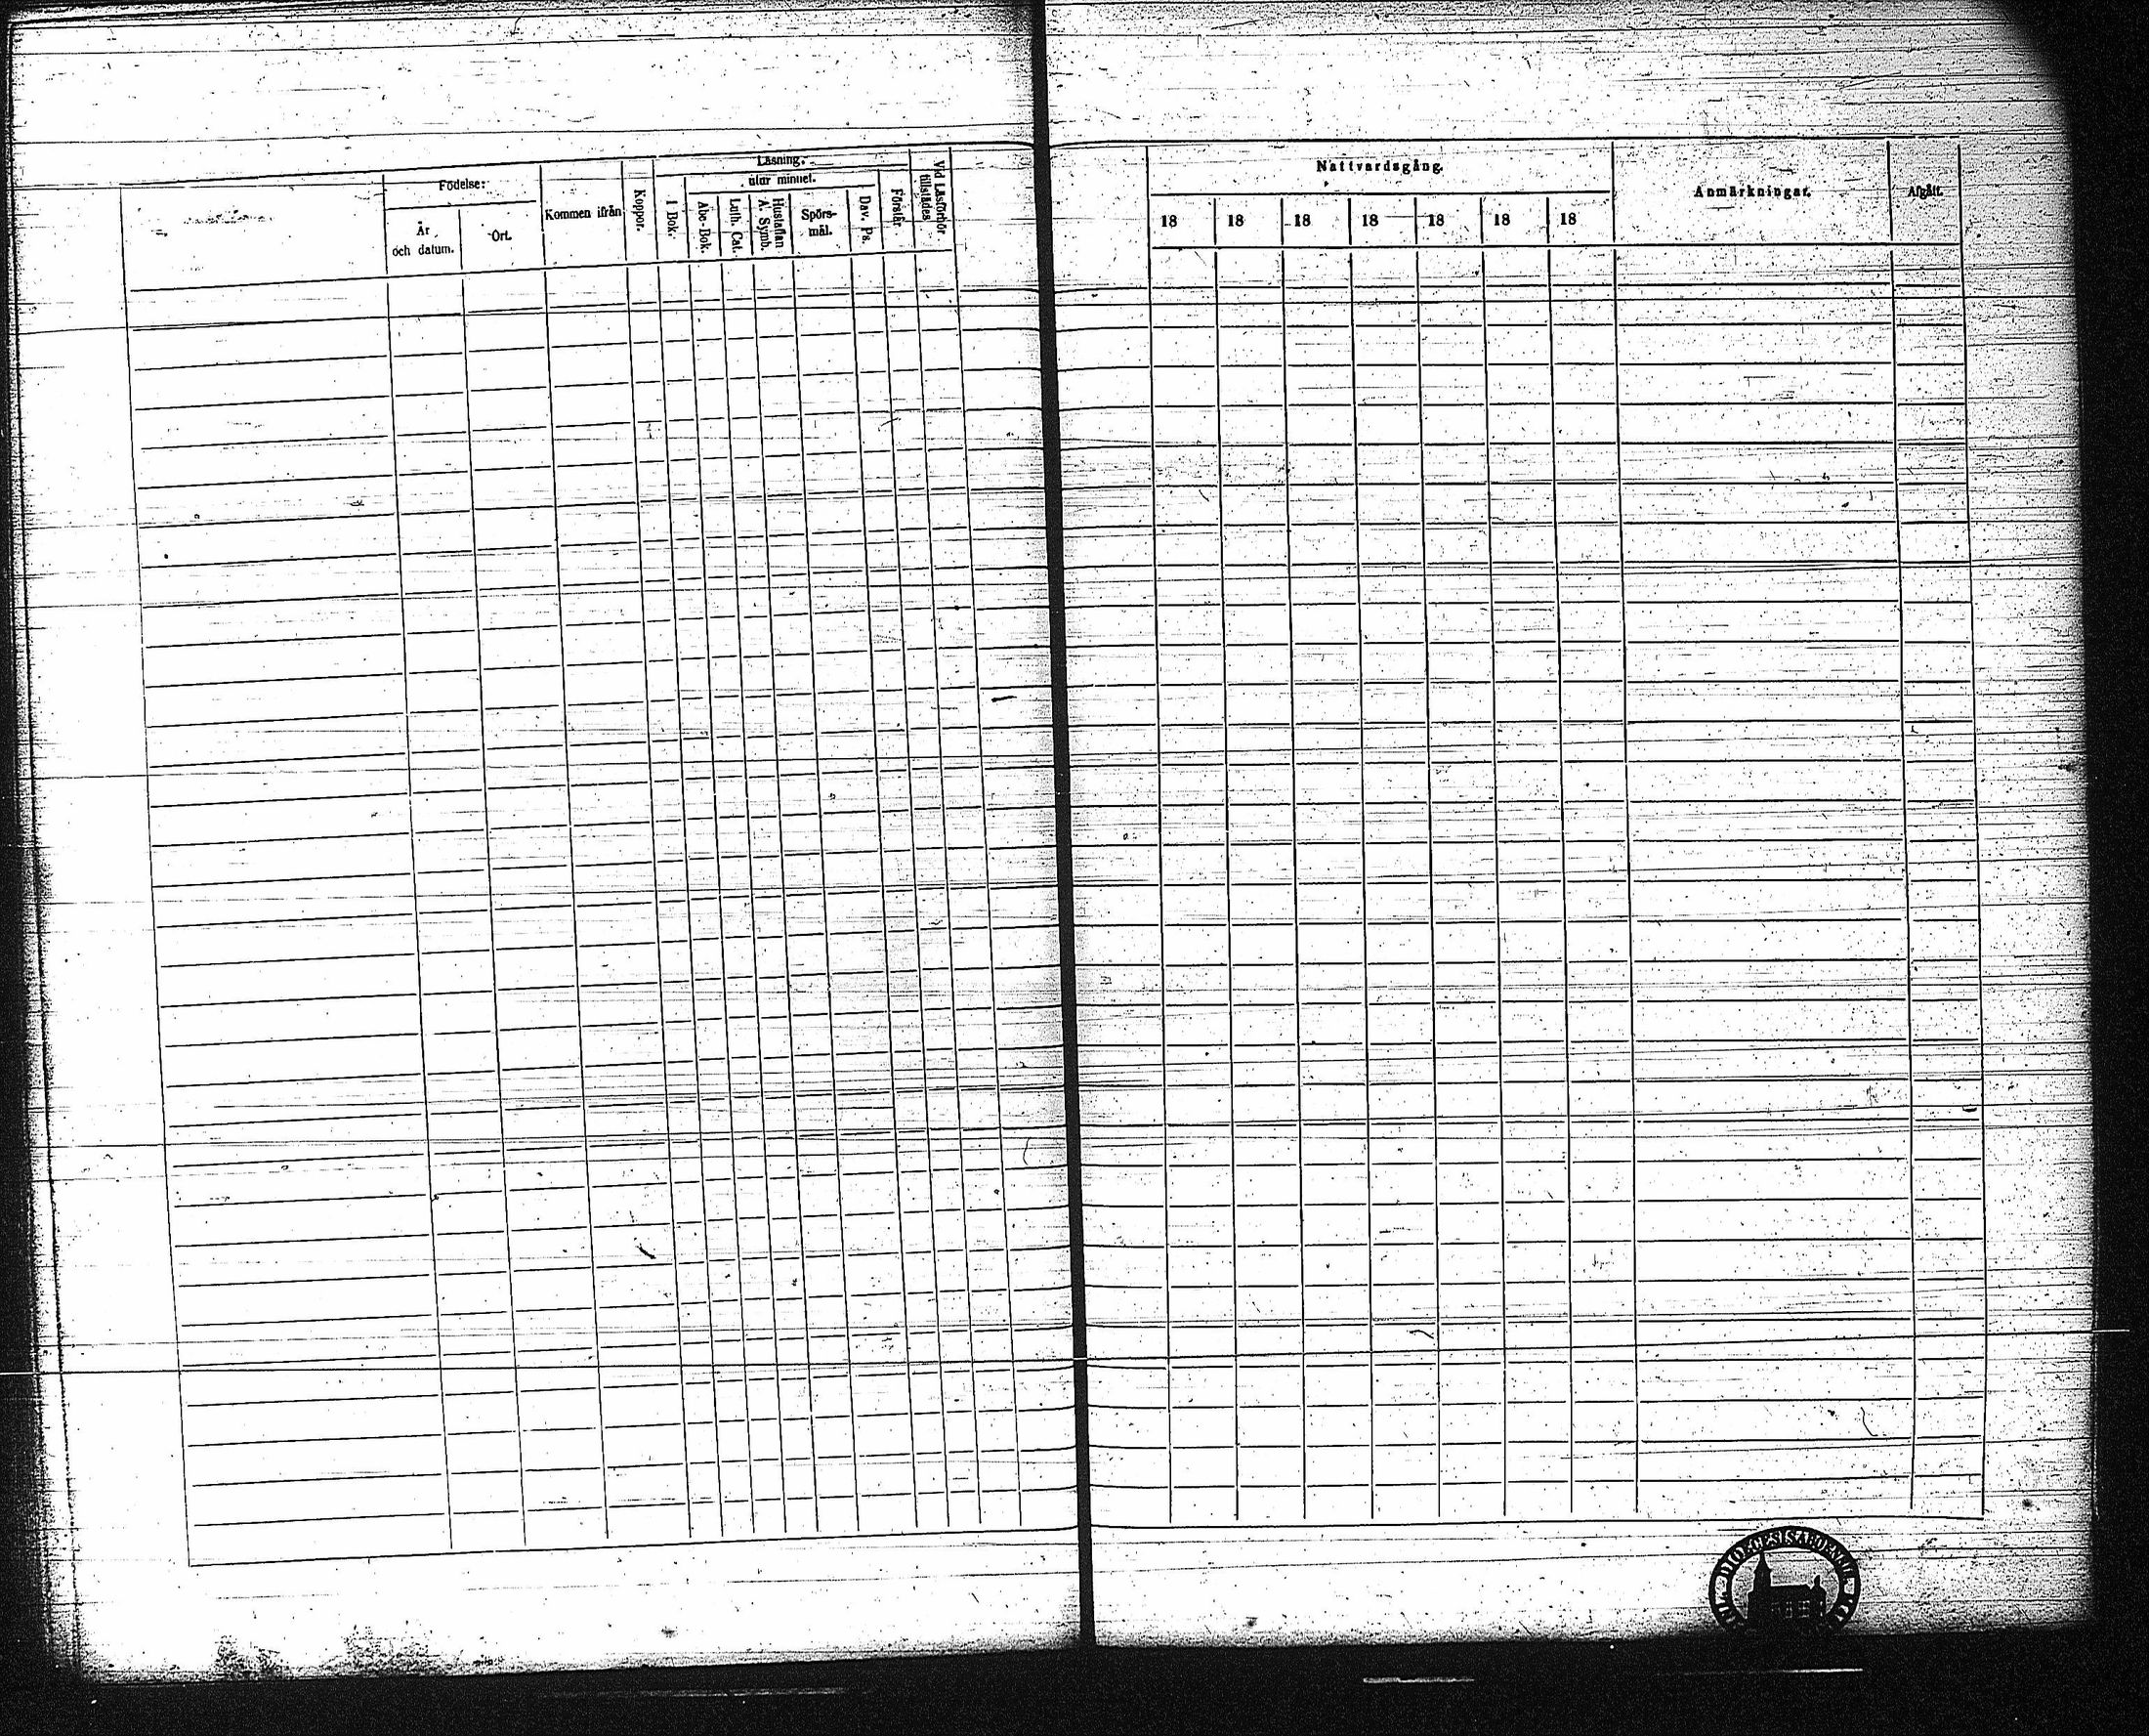 Födelse:
År och datum.
Ort.
Kommen ifrån
Koppor.
Läsning.
utur minnet.
I Bok.
Abc-Bok.
Luth. Cat.
Hustaflan A. Symb.
Spörs-
mål.
Dav. Ps.
Förstår.
Vid Läsförhör tillstädes
Nattvardsgång.
18 18 18 18 18 18 18
Anmärkningar.
Afgått.
DIOECESIS ABOENSIS